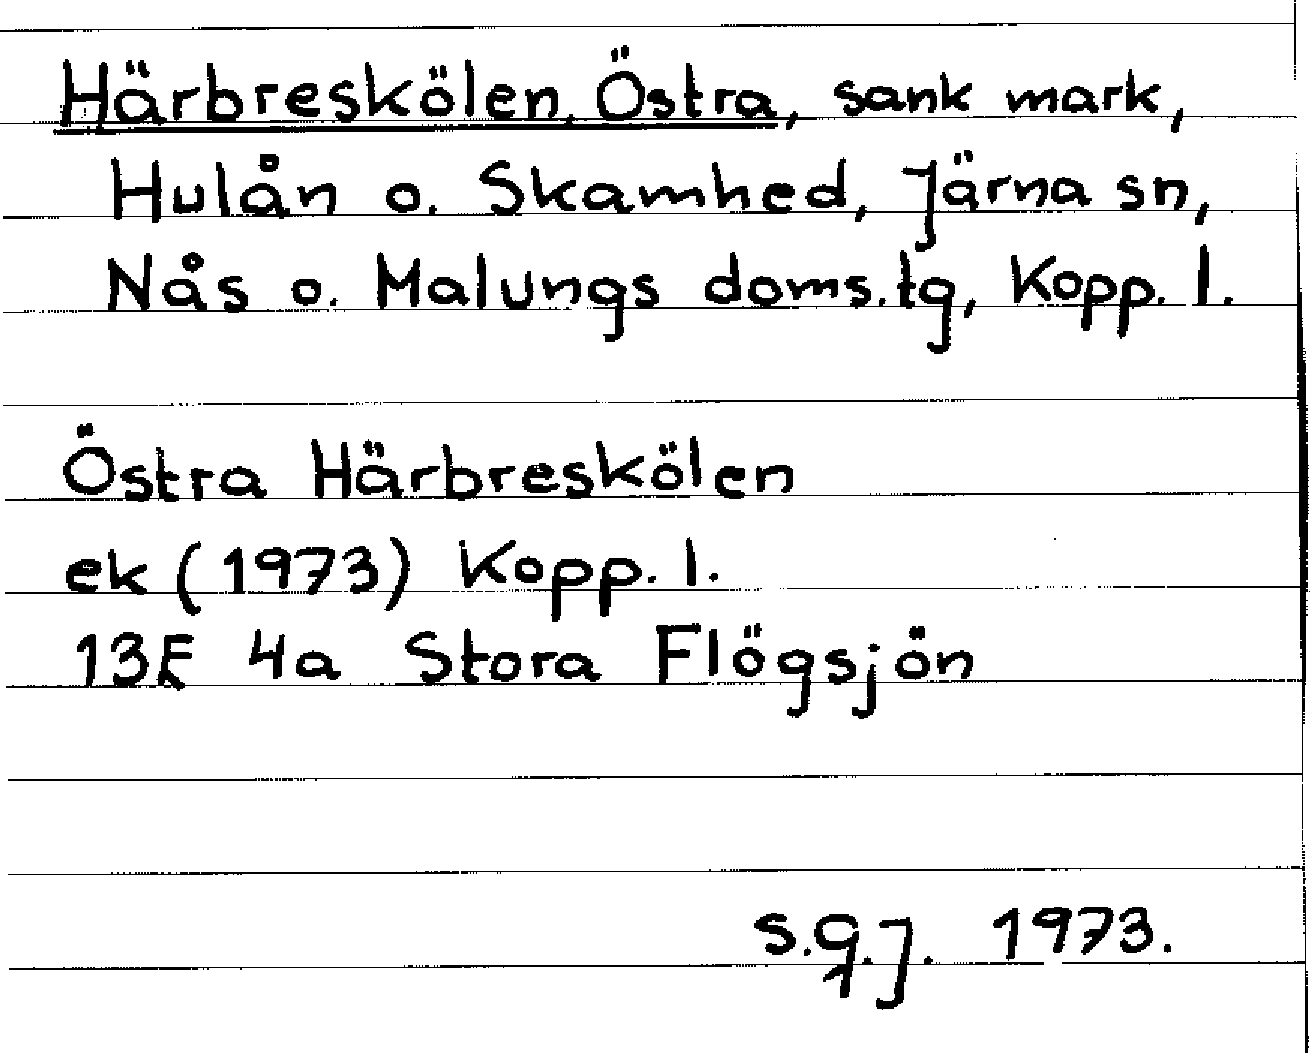 Härbreskölen, Östra, sank mark,
Hulån o. Skamhed, Järna sn,
Nås o. Malungs doms.tg, Kopp. l.
Östra Härbreskölen
ek (1973) Kopp. l.
13E 4a Stora Flögsjön
S.G.J. 1973.